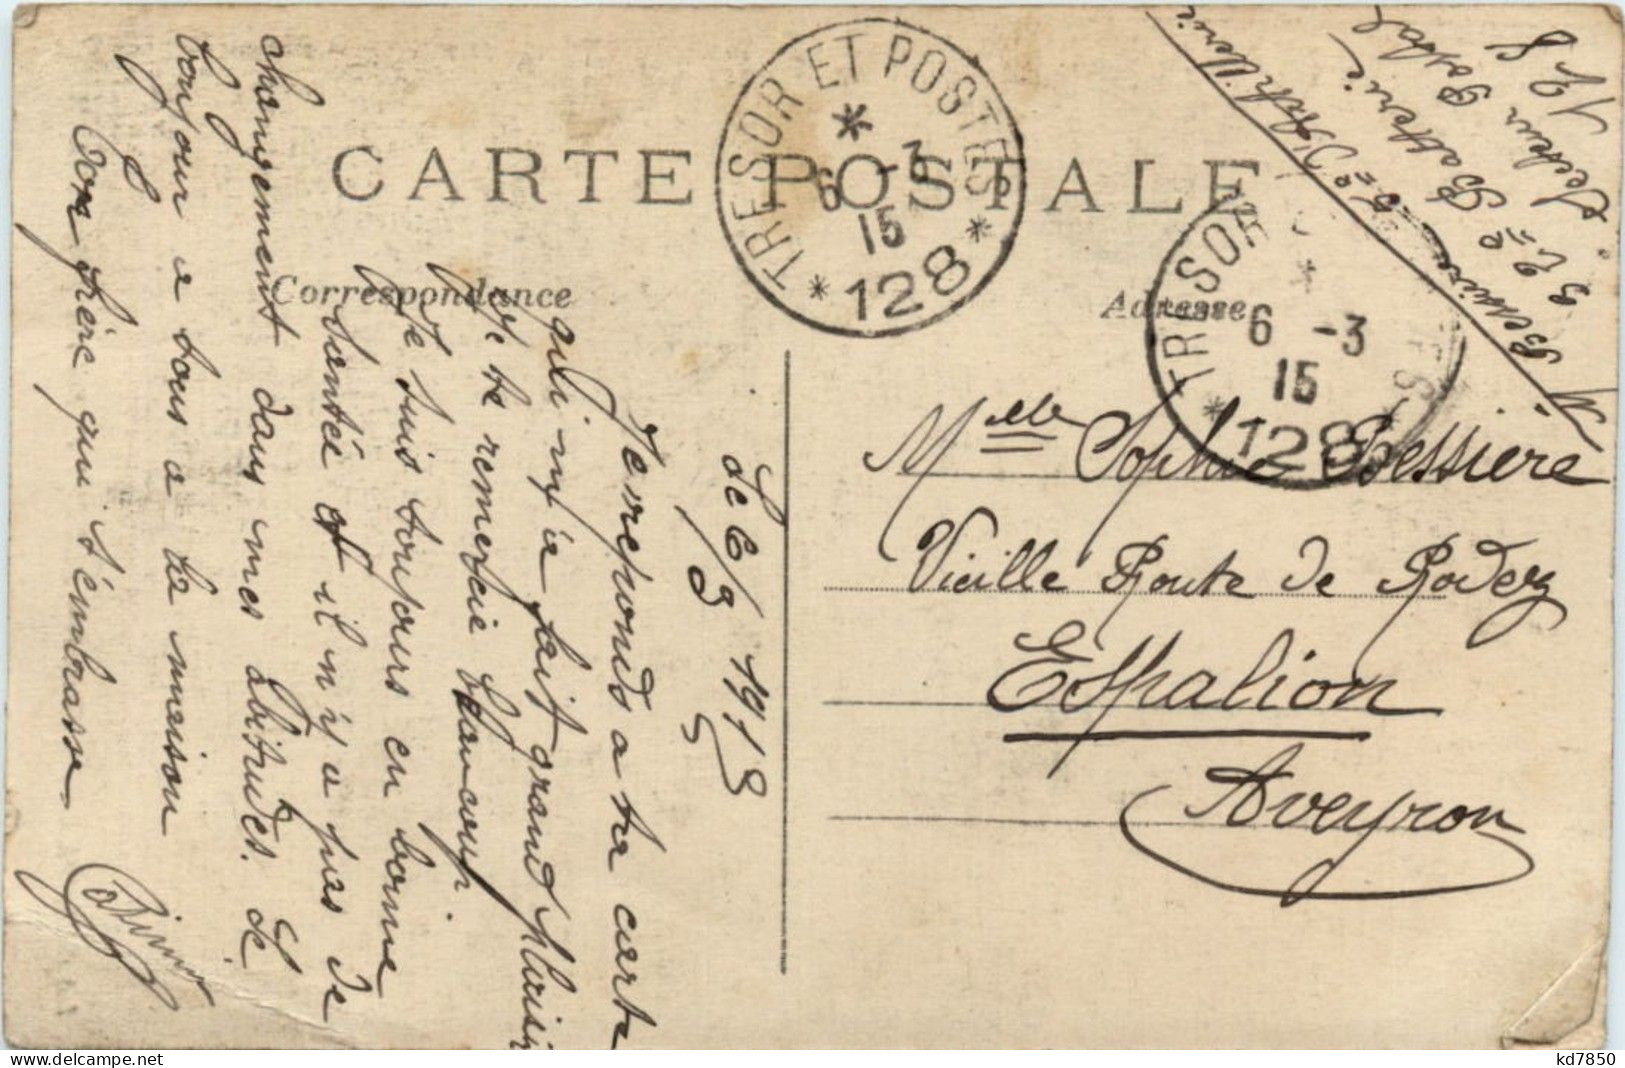 CARTE POSTALE
Correspondance
Adresse
TRESOR ET POSTES
6 -3
15
* 128 *
TRESOR
6 -3
15
* 128
Bessière
d'Artillerie
2e Batterie
Secteur Postal
128
Melle Sophie Bessière
Vieille Route de Rodez
Espalion
Aveyron
Le 6/3 1915
Je reponds a ta carte
qui m'a fait grand plaisir
Je te remercie beaucoup.
Je suis toujours en bonne
santée et il n'y a pas de
changement dans mes abitudes. Le
bonjour a tous a la maison
Ton frère qui t'embrasse
kd7850
www.delcampe.net